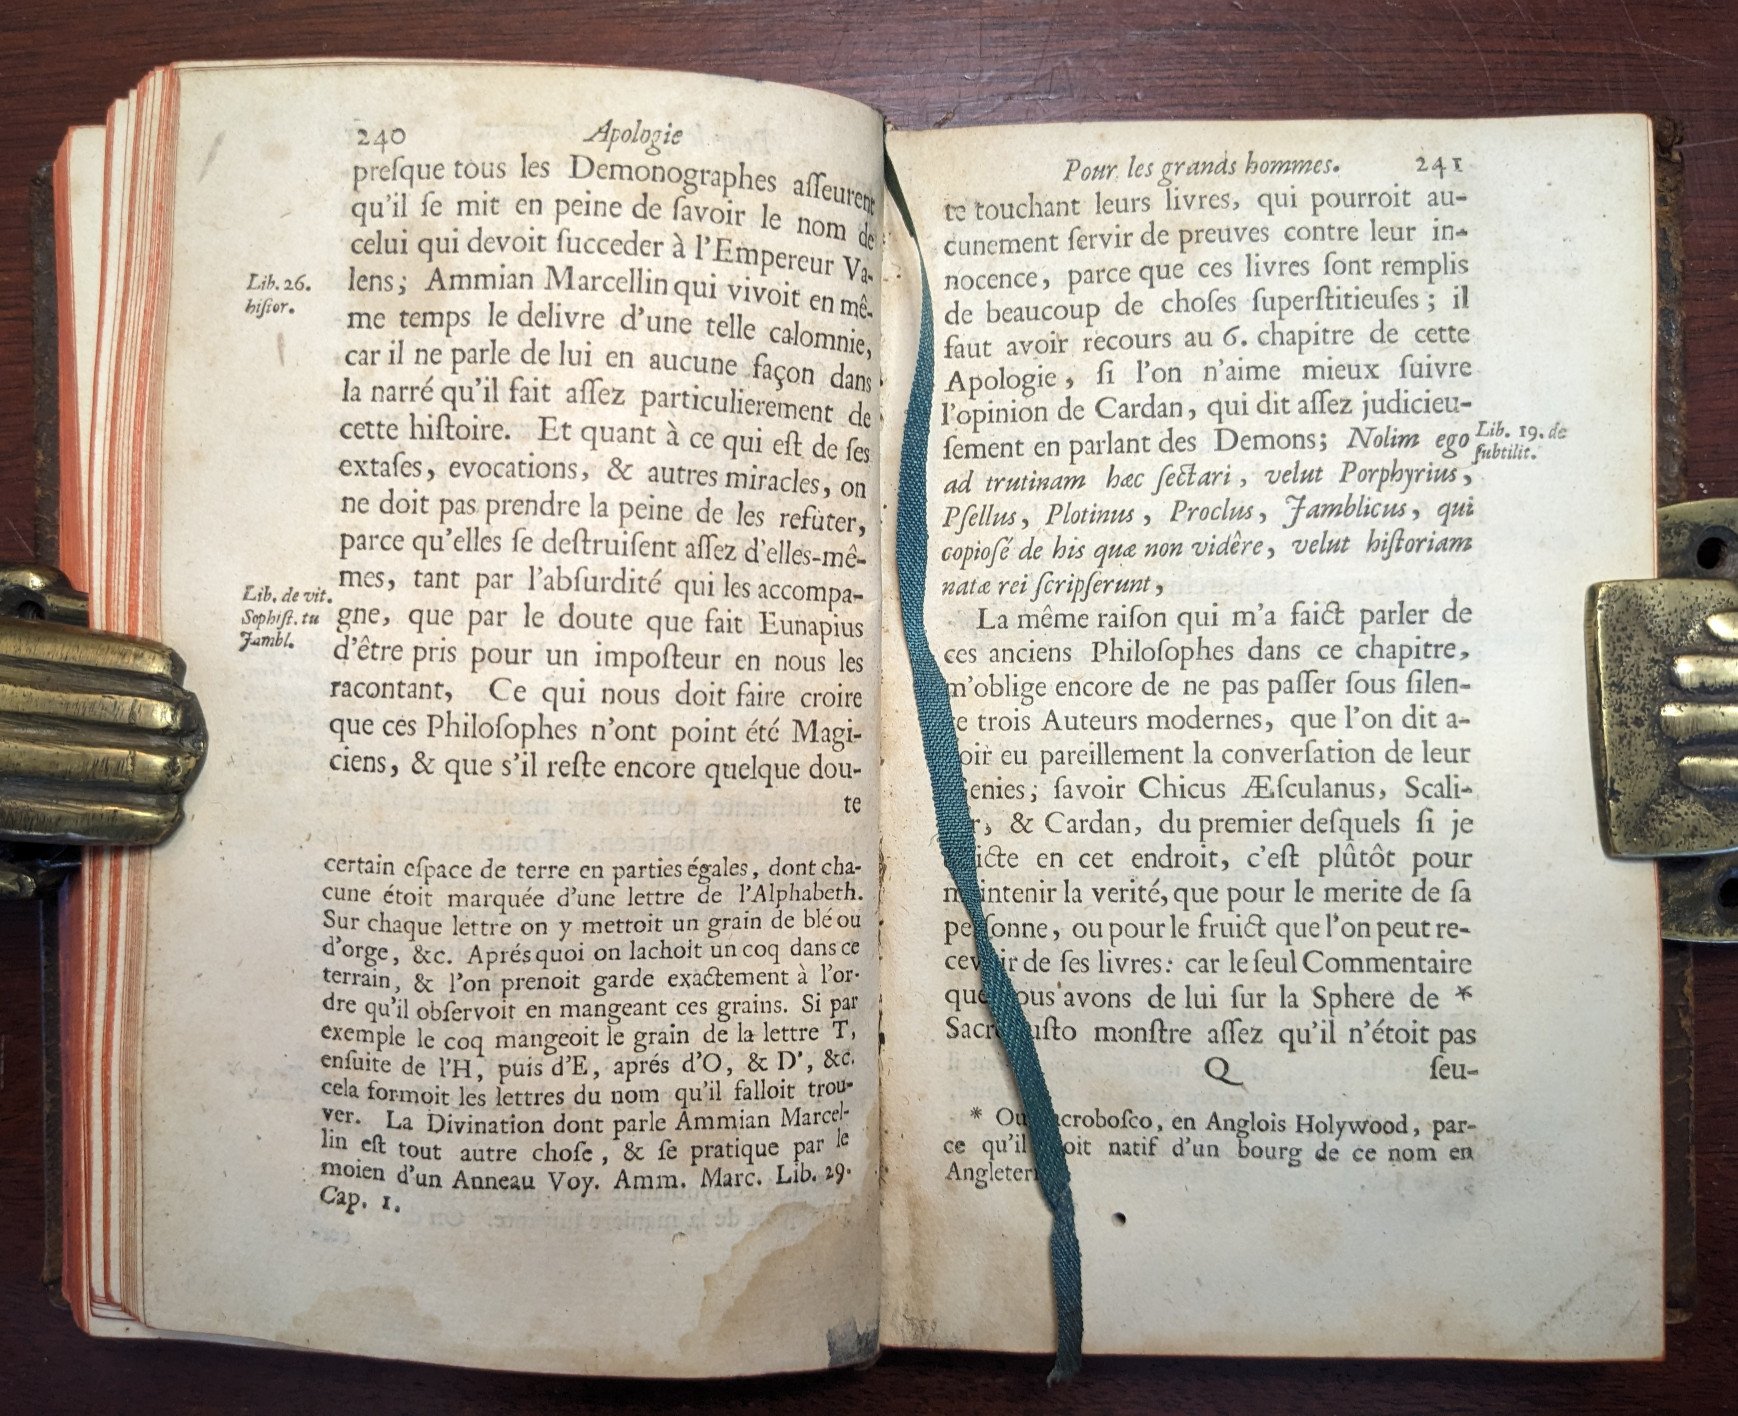 240 Apologie
preſque tous les Demonographes aſſeurent
qu'il ſe mit en peine de ſavoir le nom de
celui qui devoit ſucceder à l'Empereur Va-
Lib. 26.
hiſtor.
lens; Ammian Marcellin qui vivoit en mê-
me temps le delivre d'une telle calomnie,
car il ne parle de lui en aucune façon dans
la narré qu'il fait aſſez particulierement de
cette hiſtoire. Et quant à ce qui eſt de ſes
extaſes, evocations, & autres miracles, on
ne doit pas prendre la peine de les refuter,
parce qu'elles ſe deſtruiſent aſſez d'elles-mê-
mes, tant par l'abſurdité qui les accompa-
Lib. de vit.
Sophiſt. tu
Jambl.
gne, que par le doute que fait Eunapius
d'être pris pour un impoſteur en nous les
racontant, Ce qui nous doit faire croire
que ces Philoſophes n'ont point été Magi-
ciens, & que s'il reſte encore quelque dou-
te
certain eſpace de terre en parties égales, dont cha-
cune étoit marquée d'une lettre de l'Alphabeth.
Sur chaque lettre on y mettoit un grain de blé ou
d'orge, &c. Aprés quoi on lachoit un coq dans ce
terrain, & l'on prenoit garde exactement à l'or-
dre qu'il obſervoit en mangeant ces grains. Si par
exemple le coq mangeoit le grain de la lettre T,
enſuite de l'H, puis d'E, aprés d'O, & D', &c.
cela formoit les lettres du nom qu'il falloit trou-
ver. La Divination dont parle Ammian Marcel-
lin eſt tout autre choſe, & ſe pratique par le
moien d'un Anneau Voy. Amm. Marc. Lib. 29.
Cap. 1.
Pour les grands hommes. 241
te touchant leurs livres, qui pourroit au-
cunement ſervir de preuves contre leur in-
nocence, parce que ces livres ſont remplis
de beaucoup de choſes ſuperſtitieuſes; il
faut avoir recours au 6. chapitre de cette
Apologie, ſi l'on n'aime mieux ſuivre
l'opinion de Cardan, qui dit aſſez judicieu-
ſement en parlant des Demons; Nolim ego
Lib. 19. de
ſubtilit.
ad trutinam hæc ſectari, velut Porphyrius,
Pſellus, Plotinus, Proclus, Jamblicus, qui
copioſé de his quæ non vidêre, velut hiſtoriam
natæ rei ſcripſerunt,
La même raiſon qui m'a faict parler de
ces anciens Philoſophes dans ce chapitre,
m'oblige encore de ne pas paſſer ſous ſilen-
e trois Auteurs modernes, que l'on dit a-
oir eu pareillement la converſation de leur
enies; ſavoir Chicus Æſculanus, Scali-
r, & Cardan, du premier deſquels ſi je
icte en cet endroit, c'eſt plûtôt pour
maintenir la verité, que pour le merite de ſa
perſonne, ou pour le fruict que l'on peut re-
cevoir de ſes livres: car le ſeul Commentaire
que nous avons de lui ſur la Sphere de *
Sacrobuſto monſtre aſſez qu'il n'étoit pas
Q ſeu-
* Ou Sacroboſco, en Anglois Holywood, par-
ce qu'il étoit natif d'un bourg de ce nom en
Angleter